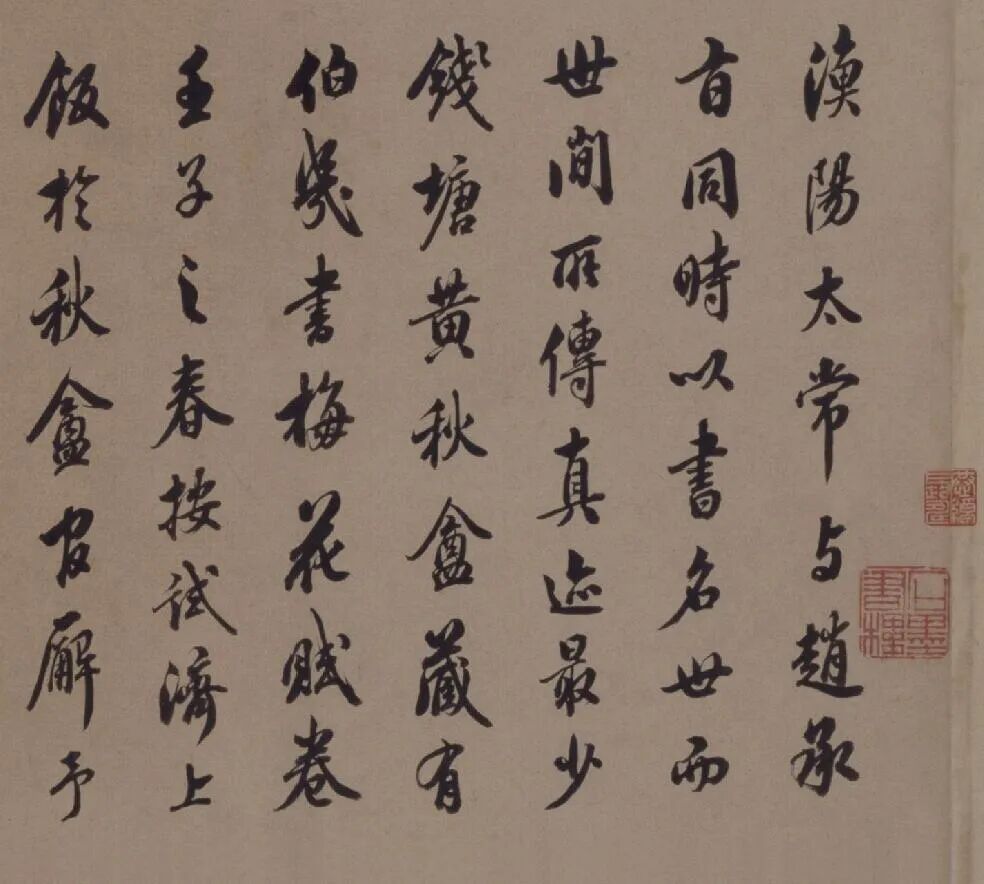 漁陽太常与趙承
旨同時以書名世而
世間所傳真迹最少
錢塘黃秋盦藏有
伯幾書梅花賦卷
壬子之春按試濟上
飯於秋盦官廨予
石墨書樓